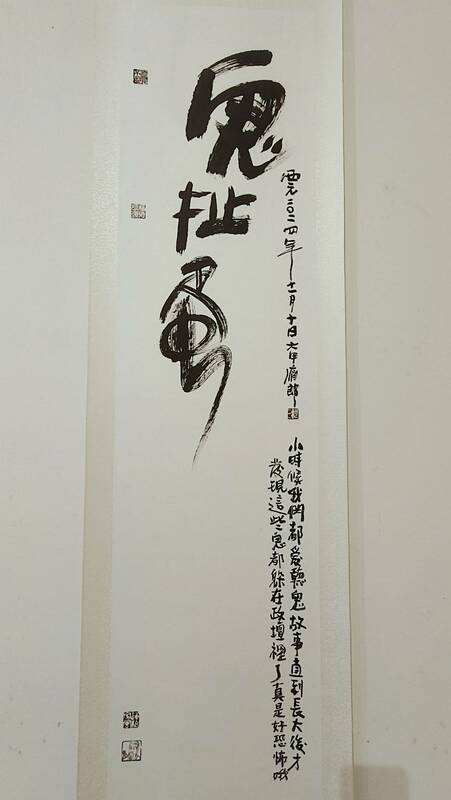 鬼扯蛋
西元二〇二四年十一月十日大甲
小時候我們都愛聽鬼故事直到長大後才
發現這些鬼都躲在政壇裡了真是好恐怖哦